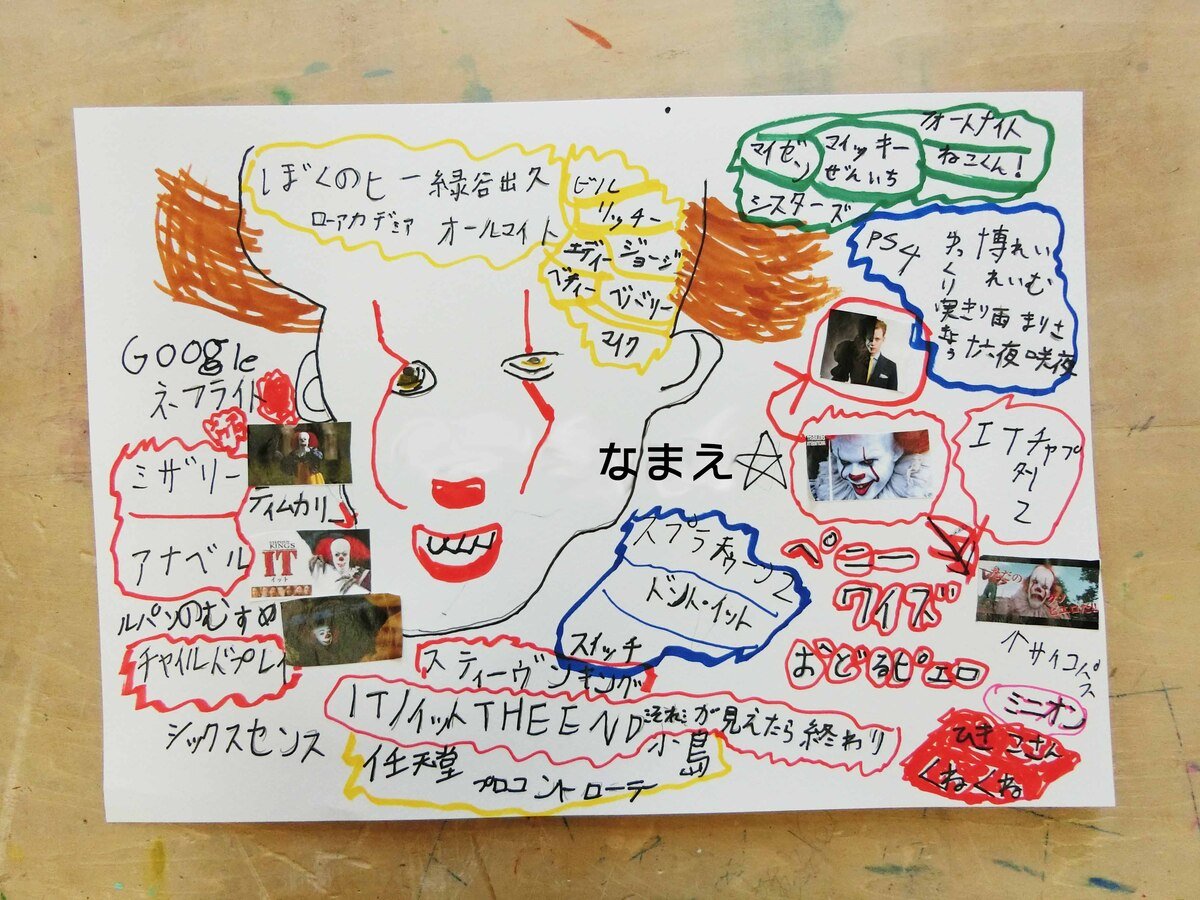 ぼくのヒー
ローアカデミア
緑谷出久
オールマイト
ビル
リッチー
エディー
ジョージ
ベバリー
マイク
マイゼン
シスターズ
マイッキー
ぜんいち
フォートナイト
ねこくん!
PS4
ゆっくり実きょう
博れい
れいむ
きり雨まりさ
十六夜咲夜
Google
ネフライト
ミザリー
アナベル
ティムカリー
KINGS
IT
イット
ルパンのむすめ
チャイルドプレイ
シックスセンス
なまえ☆
ITチャプ
タリ2
スプラトゥーン2
ドント・イット
スイッチ
ペニー
ワイズ
おどるピエロ
↑サイコパス
ミニオン
ひきこさん
くねくね
スティーヴンキング
IT/イットTHE END
"それ"が見えたら終わり
任天堂
小島
プロコントローテ